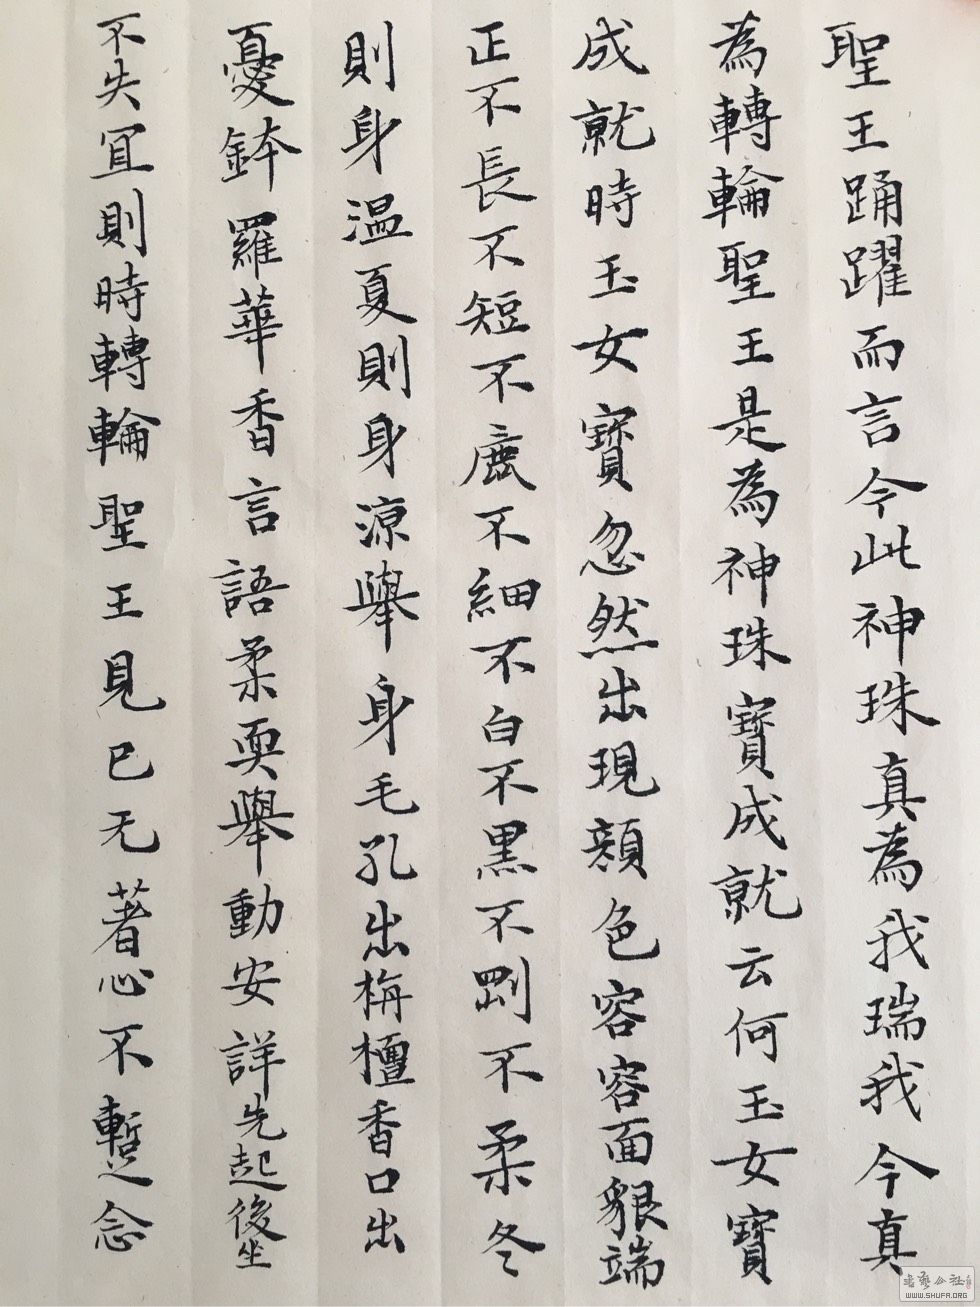 聖王踊躍而言今此神珠真為我瑞我今真
為轉輪聖王是為神珠寶成就云何玉女寶
成就時玉女寶忽然出現顏色容容面貇端
正不長不短不麁不細不白不黒不剛不柔冬
則身温夏則身涼舉身毛孔出栴檀香口出
憂鉢羅華香言語柔耎舉動安詳先起後坐
不失冝則時轉輪聖王見已无著心不暫念
書藝公社
WWW.SHUFA.ORG